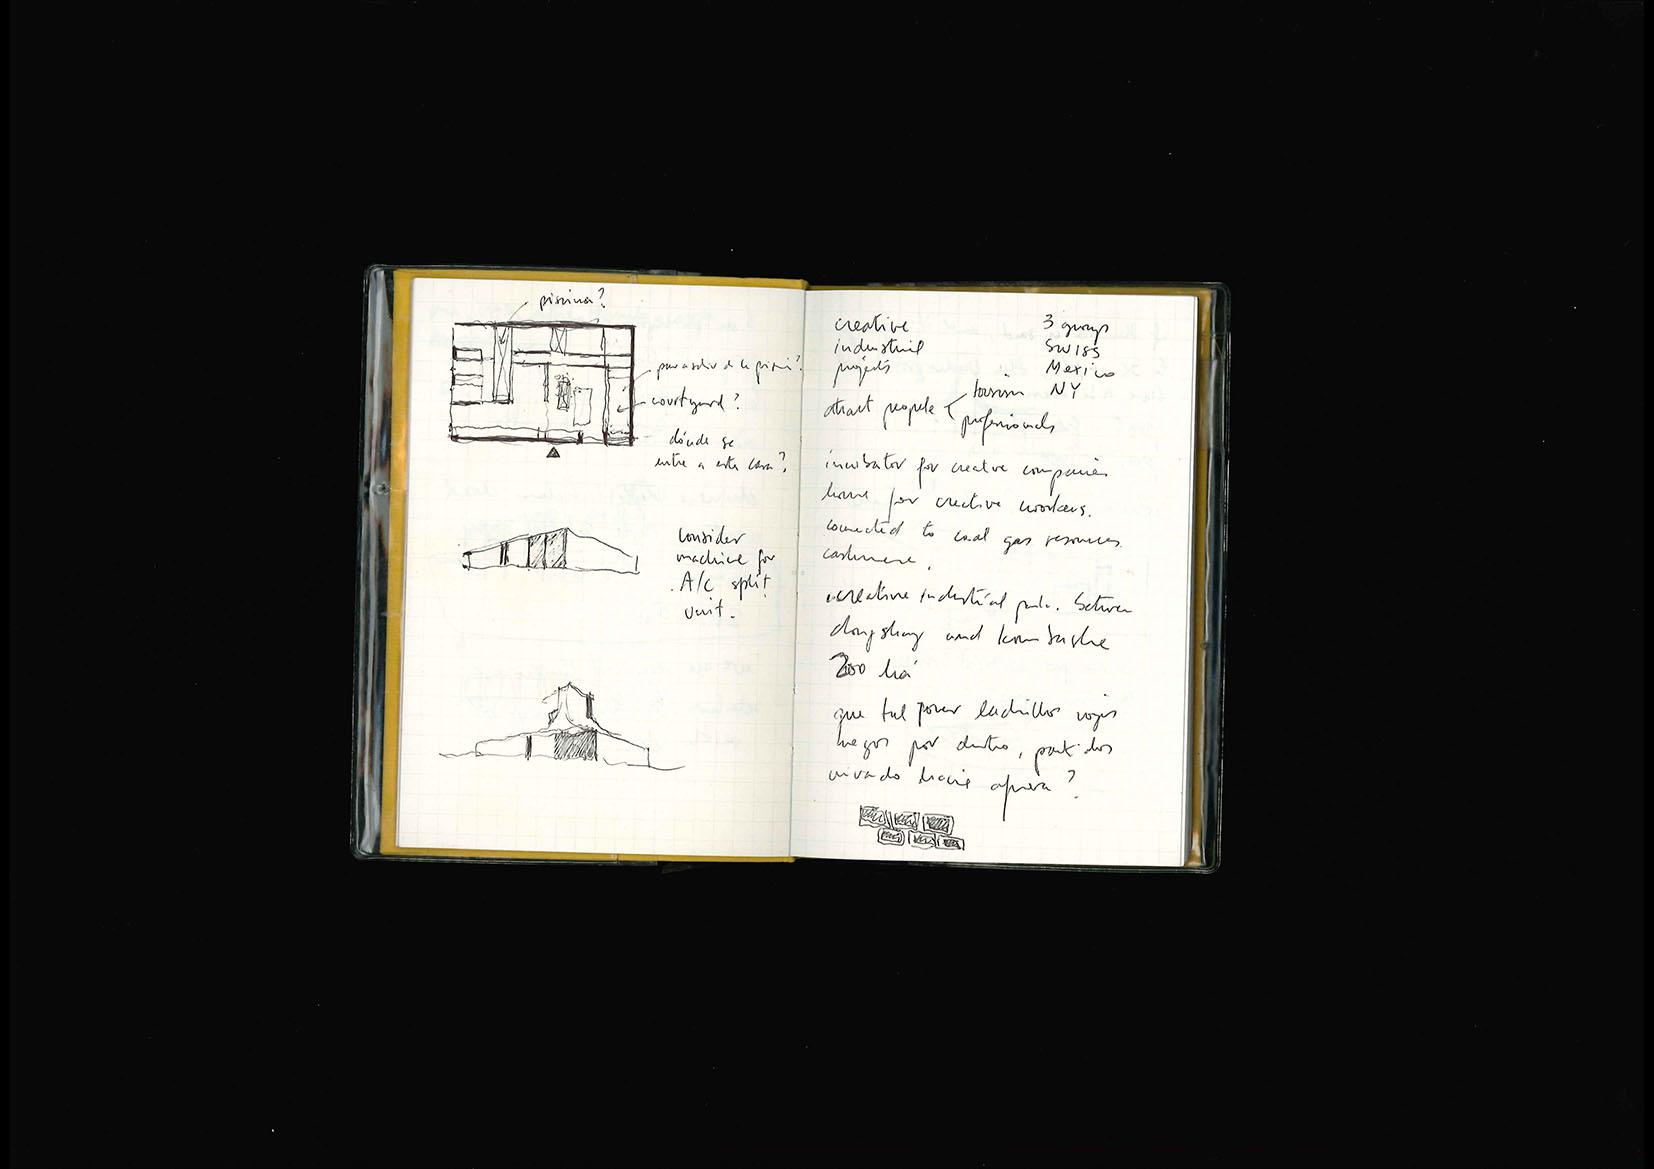 piscina?
de la
courtyard?
dónde se
entre a esta casa?
consider
machine for
A/C split
unit.
creative
industrial
projects
3 groups
SWISS
Mexico
NY
attract people
tourism
professionals
incubator for creative companies
home for creative workers.
connected to coal gas resources
cashmere.
creative industrial park. between
and
200 há
que tal poner ladrillos rojos
negros por dentro, partidos
hacia afuera?